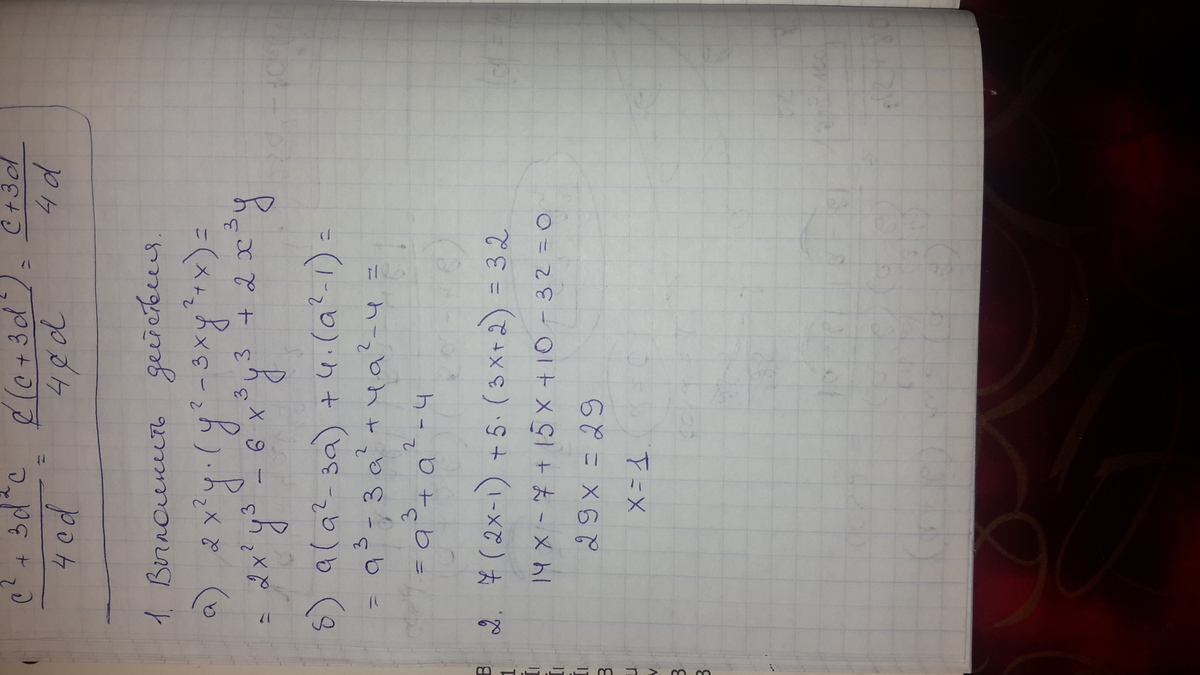 c² + 3d²c / 4cd = c(c + 3d²) / 4cd = c + 3d / 4d
1. Выполнить действия.
а) 2x²y·(y² - 3xy² + x) =
= 2x²y³ - 6x³y³ + 2x³y
б) a(a² - 3a) + 4·(a² - 1) =
= a³ - 3a² + 4a² - 4 =
= a³ + a² - 4
2. 7(2x-1) + 5·(3x+2) = 32
14x - 7 + 15x + 10 - 32 = 0
29x = 29
x = 1.